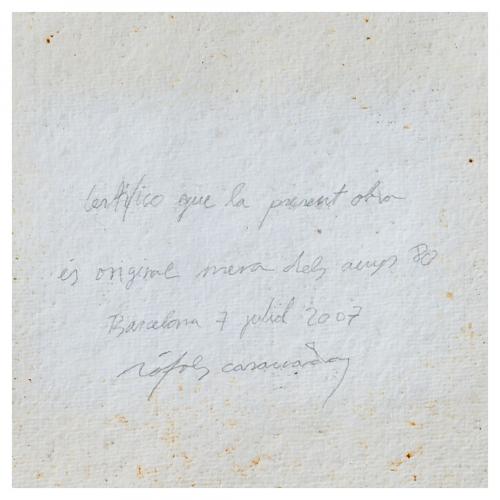 Certifico que la present obra
és original meva dels anys 80
Barcelona 7 juliol 2007
Ràfols Casamada